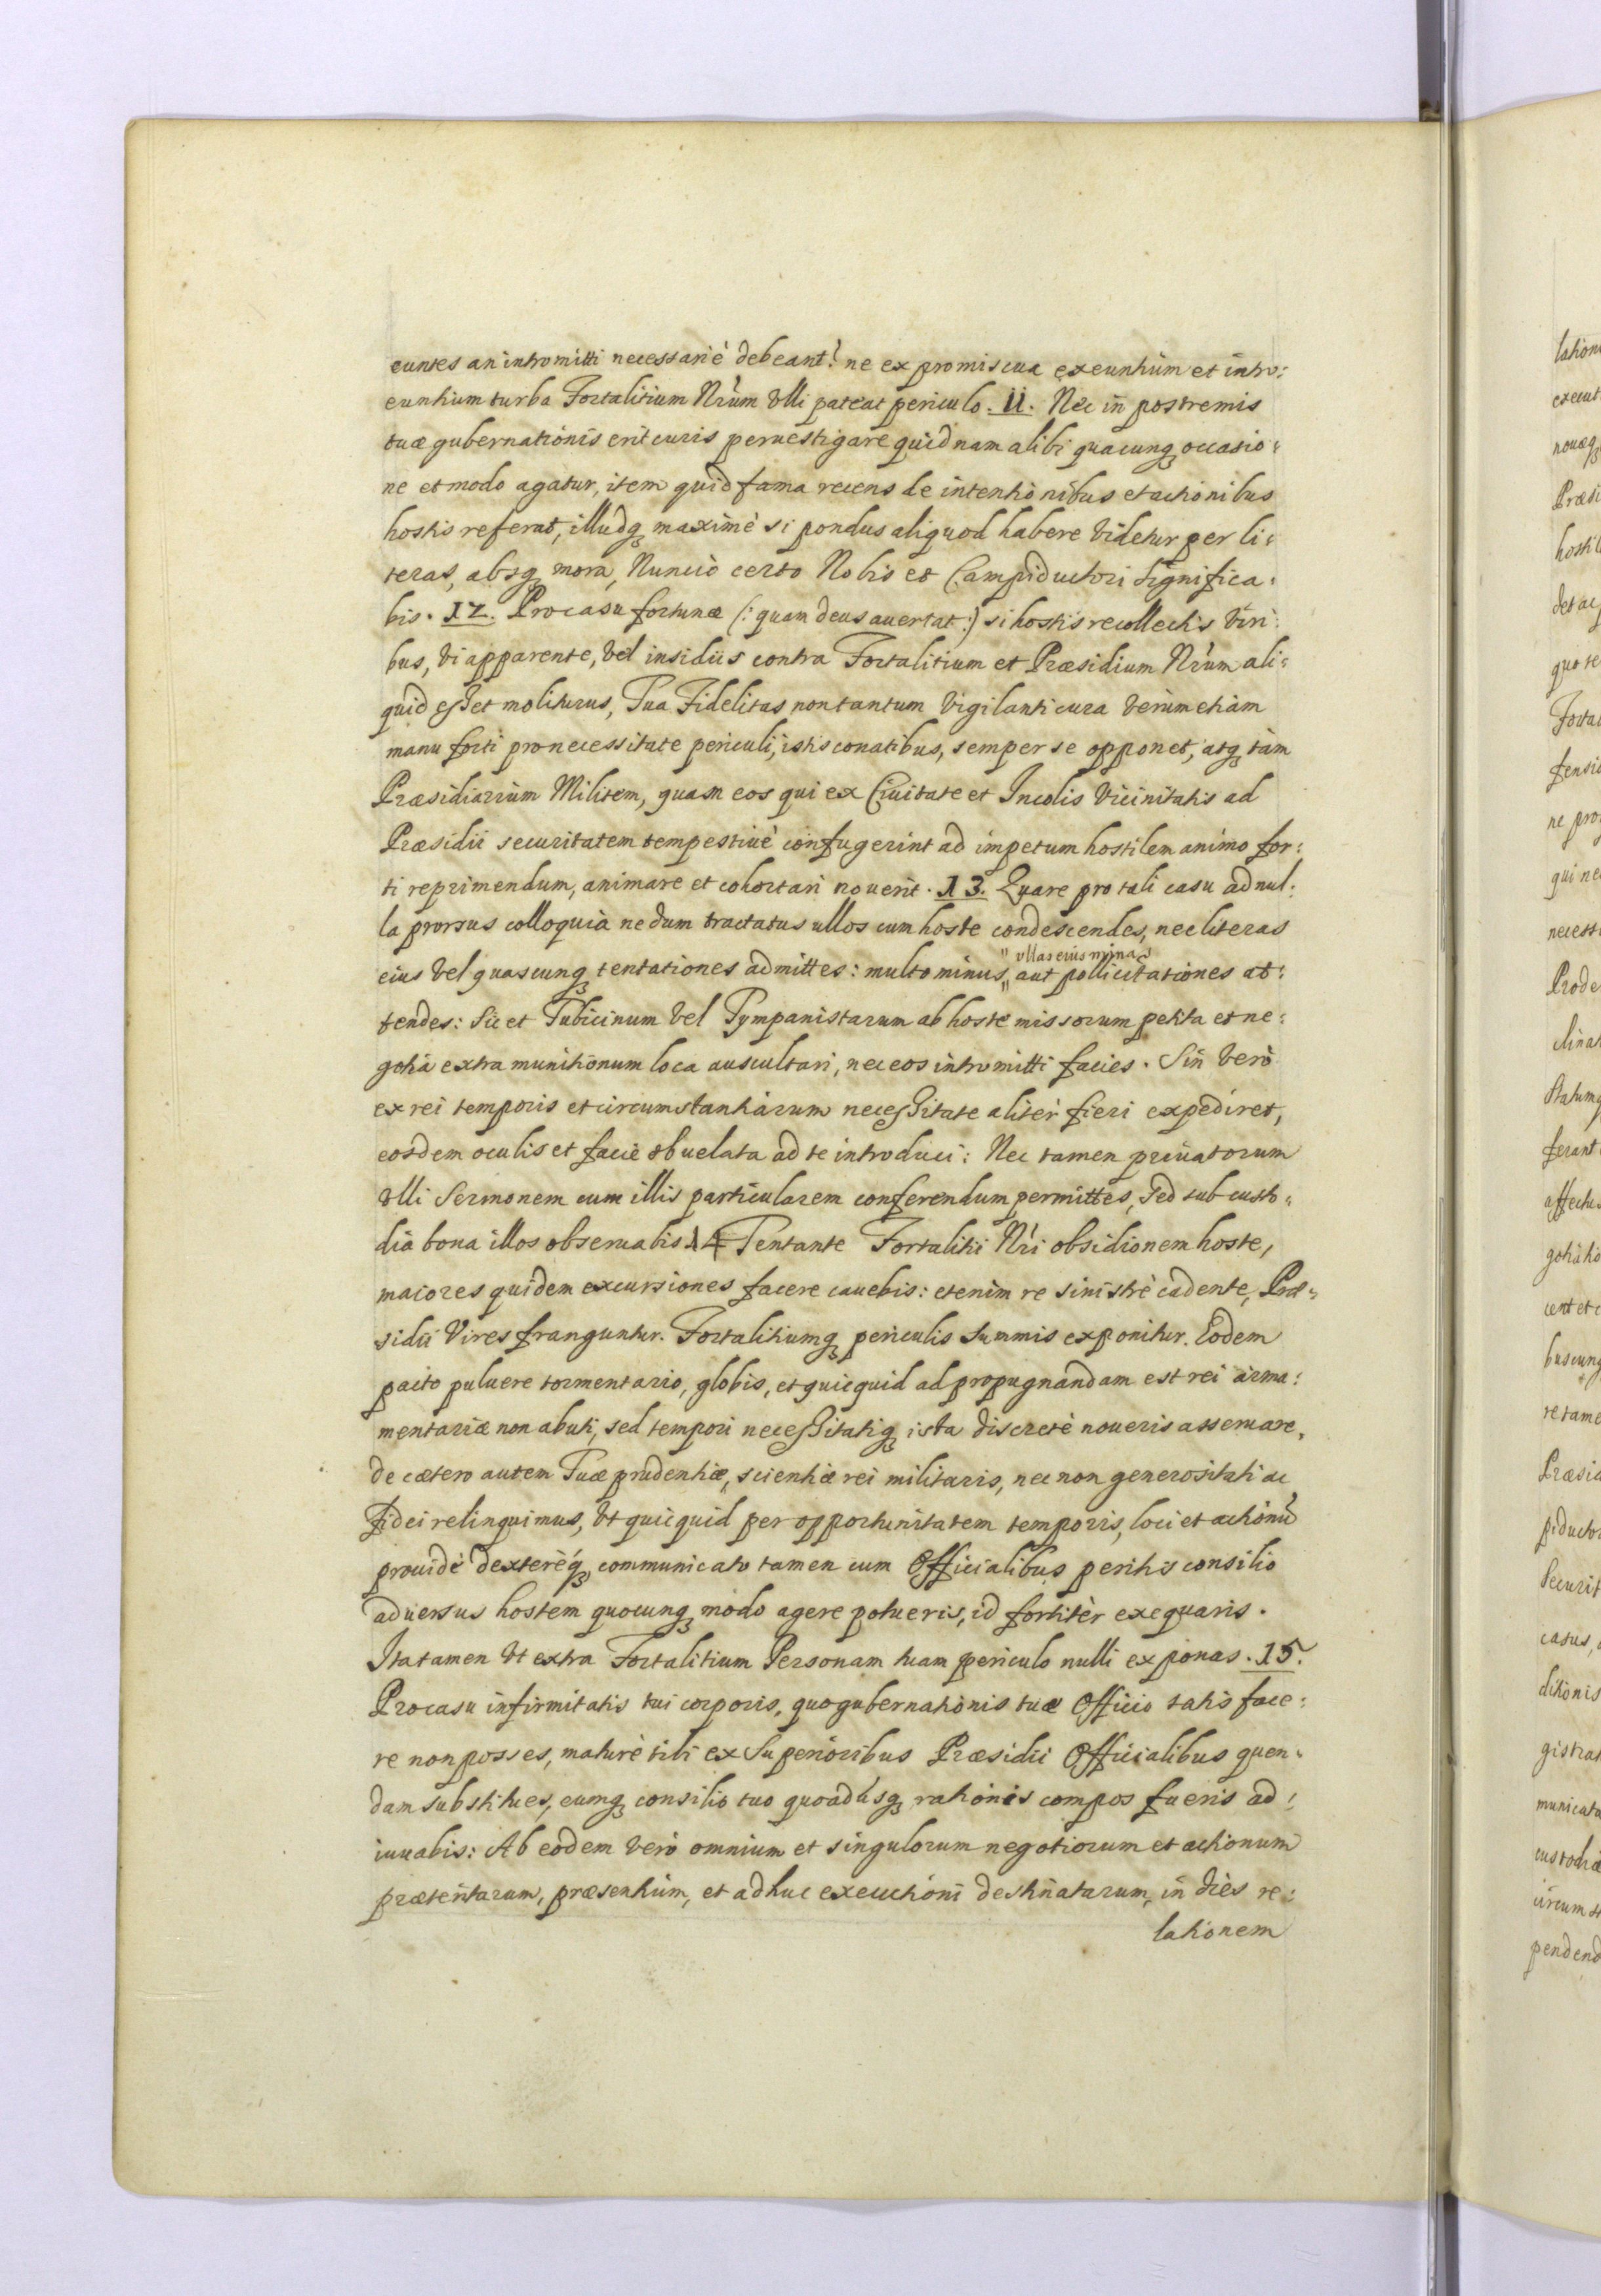 euntes an intromitti necessariè debeant? ne ex promiscua exeuntium et intro:
euntium turba Fortalitium Nr̃um ulli pateat periculo. 11. Nec in postremis
tuæ gubernationis erit curis peruestigare quidnam alibi quacunq; occasio:
ne et modo agatur, item quid fama recens de intentionibus et actionibus
hostis referat, illudq; maximè si pondus aliquod habere videtur per li:
teras, absq; mora, Nuncio certo Nobis et Campiductori significa:
bis. 12. Pro casu fortunæ (: quam deus auertat :) si hostis recollectis viri:
bus, vi apparente, vel insidiis contra Fortalitium et Præsidium Nr̃um ali:
quid esset moliturus, Tua Fidelitas non tantum vigilanti cura verùm etiàm
manu forti pro necessitate periculi, istis conatibus, semper se opponet, atq; tàm
Præsidiarium Militem, quam eos qui ex Ciuitate et Incolis Vicinitatis ad
Præsidii securitatem tempestiuè confugerint ad impetum hostilem animo for:
ti reprimendum, animare et cohortari nouerit. 13. Quare pro tali casu ad nul:
la prorsus colloquia nedum tractatus ullos cum hoste condescendes, nec literas
" ullas eius minas
eius vel quascunq; tentationes admittes: multo minus " aut pollicitationes at:
tendes: Sic et Tubicinum vel Tympanistarum ab hoste missorum petita et ne:
gotia extra munitionum loca auscultari, nec eos intromitti facies. Sin verò
ex rei temporis et circumstantiarum necessitate alitèr fieri expediret,
eosdem oculis et facie obuelata ad te introduci: Nec tamen priuatorum
ulli Sermonem cum illis particularem conferendum permittes, sed sub custo:
dia bona illos obseruabis. 14 Tentante Fortalitii Nr̃i obsidionem hoste,
maiores quidem excursiones facere cauebis: etenim re sinistrè cadente, Præ:
sidii Vires franguntur. Fortalitiumq; periculis summis exponitur. Eodem
pacto puluere tormentario, globis, et quicquid ad propugnandam est rei arma:
mentariæ non abuti, sed tempori necessitatiq; ista discretè noueris asseruare,
de cætero autem Tuæ prudentiæ, scientiæ rei militaris, nec non generositati ac
fidei relinquimus, Ut quicquid per opportunitatem temporis, loci et actionū
prouidè dexterèq; communicato tamen cum Officialibus peritis consilio
aduersus hostem quocunq; modo agere potueris, id fortitèr exequaris.
Ita tamen Ut extra Fortalitium Personam tuam periculo nulli exponas. 15.
Pro casu infirmitatis tui corporis, quo gubernationis tuæ Officio satis face:
re non posses, maturè tibi ex Superioribus Præsidii Officialibus quen:
dam substitues, eumq; consilio tuo quoadusq; rationis compos fueris ad:
iuuabis: Ab eodem verò omnium et singulorum negotiorum et actionum
prætentarum, præsentium, et adhuc executioni destinatarum, in dies re:
lationem